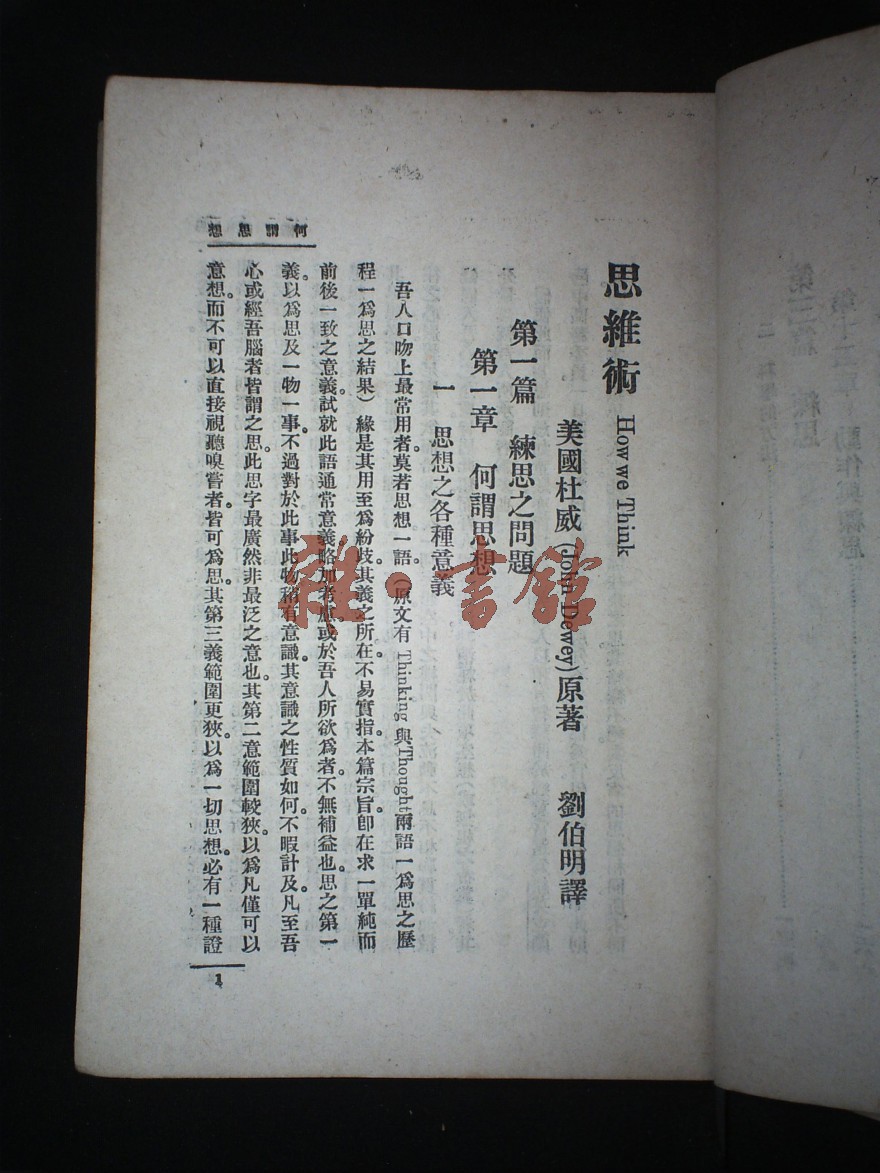 思維術 How we Think
美國杜威(John Dewey)原著 劉伯明譯
第一篇 練思之問題
第一章 何謂思想
一 思想之各種意義
吾人口吻上最常用者。莫若思想一語。(原文有Thinking與Thought兩語一爲思之歷
程一爲思之結果)緣是其用至爲紛歧。其義之所在。不易實指。本篇宗旨。卽在求一單純而
前後一致之意義。試就此語通常意義。略加考慮。或於吾人所欲爲者。不無補益也。思之第一
義。以爲思及一物一事。不過對於此事此物。稍有意識。其意識之性質如何。不暇計及。凡至吾
心或經吾腦者。皆謂之思。此思字最廣。然非最泛之意也。其第二意範圍較狹。以爲凡僅可以
意想。而不可以直接視聽嗅嘗者。皆可爲思。其第三義範圍更狹。以爲一切思想。必有一種證
何謂思想
1
雜·書館
第三篇 練思